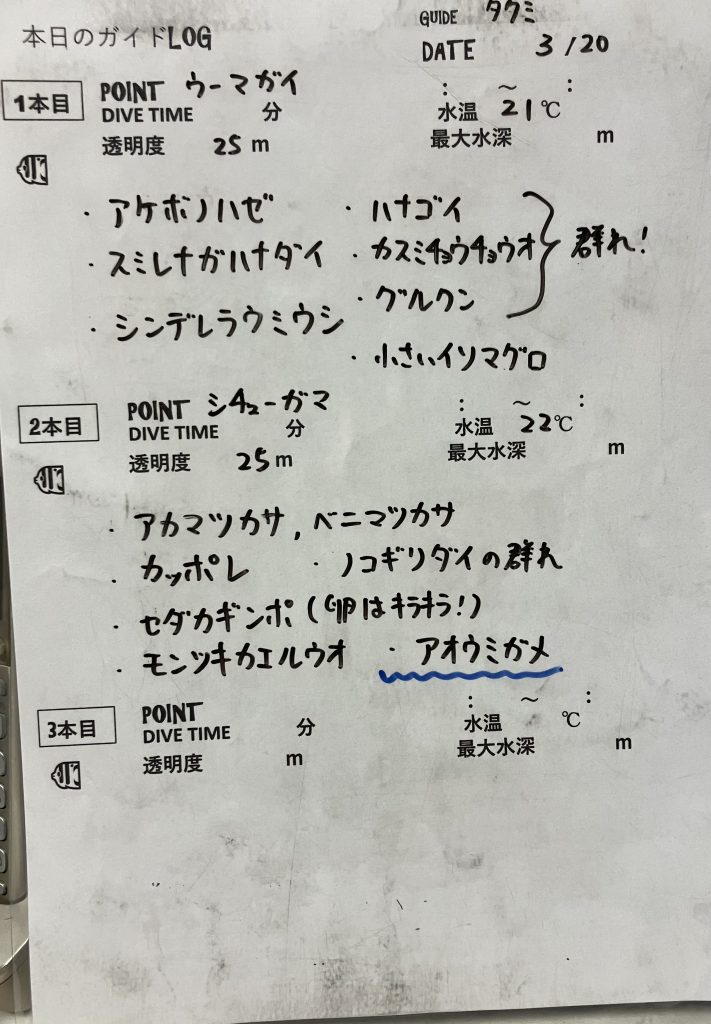 GUIDE タクミ
本日のガイドLOG
DATE 3/20
1本目 POINT ウーマガイ : ～ :
DIVE TIME 分 水温 21℃
透明度 25m 最大水深 m
・アケボノハゼ ・ハナゴイ
・スミレナガハナダイ ・カスミチョウチョウオ 群れ!
・シンデレラウミウシ ・グルクン
・小さいイソマグロ
2本目 POINT シチューガマ : ～ :
DIVE TIME 分 水温 22℃
透明度 25m 最大水深 m
・アカマツカサ,ベニマツカサ
・カッポレ ・ノコギリダイの群れ
・セダカギンポ(卵はキラキラ!)
・モンツキカエルウオ ・アオウミガメ
3本目 POINT : ～ :
DIVE TIME 分 水温 ℃
透明度 m 最大水深 m